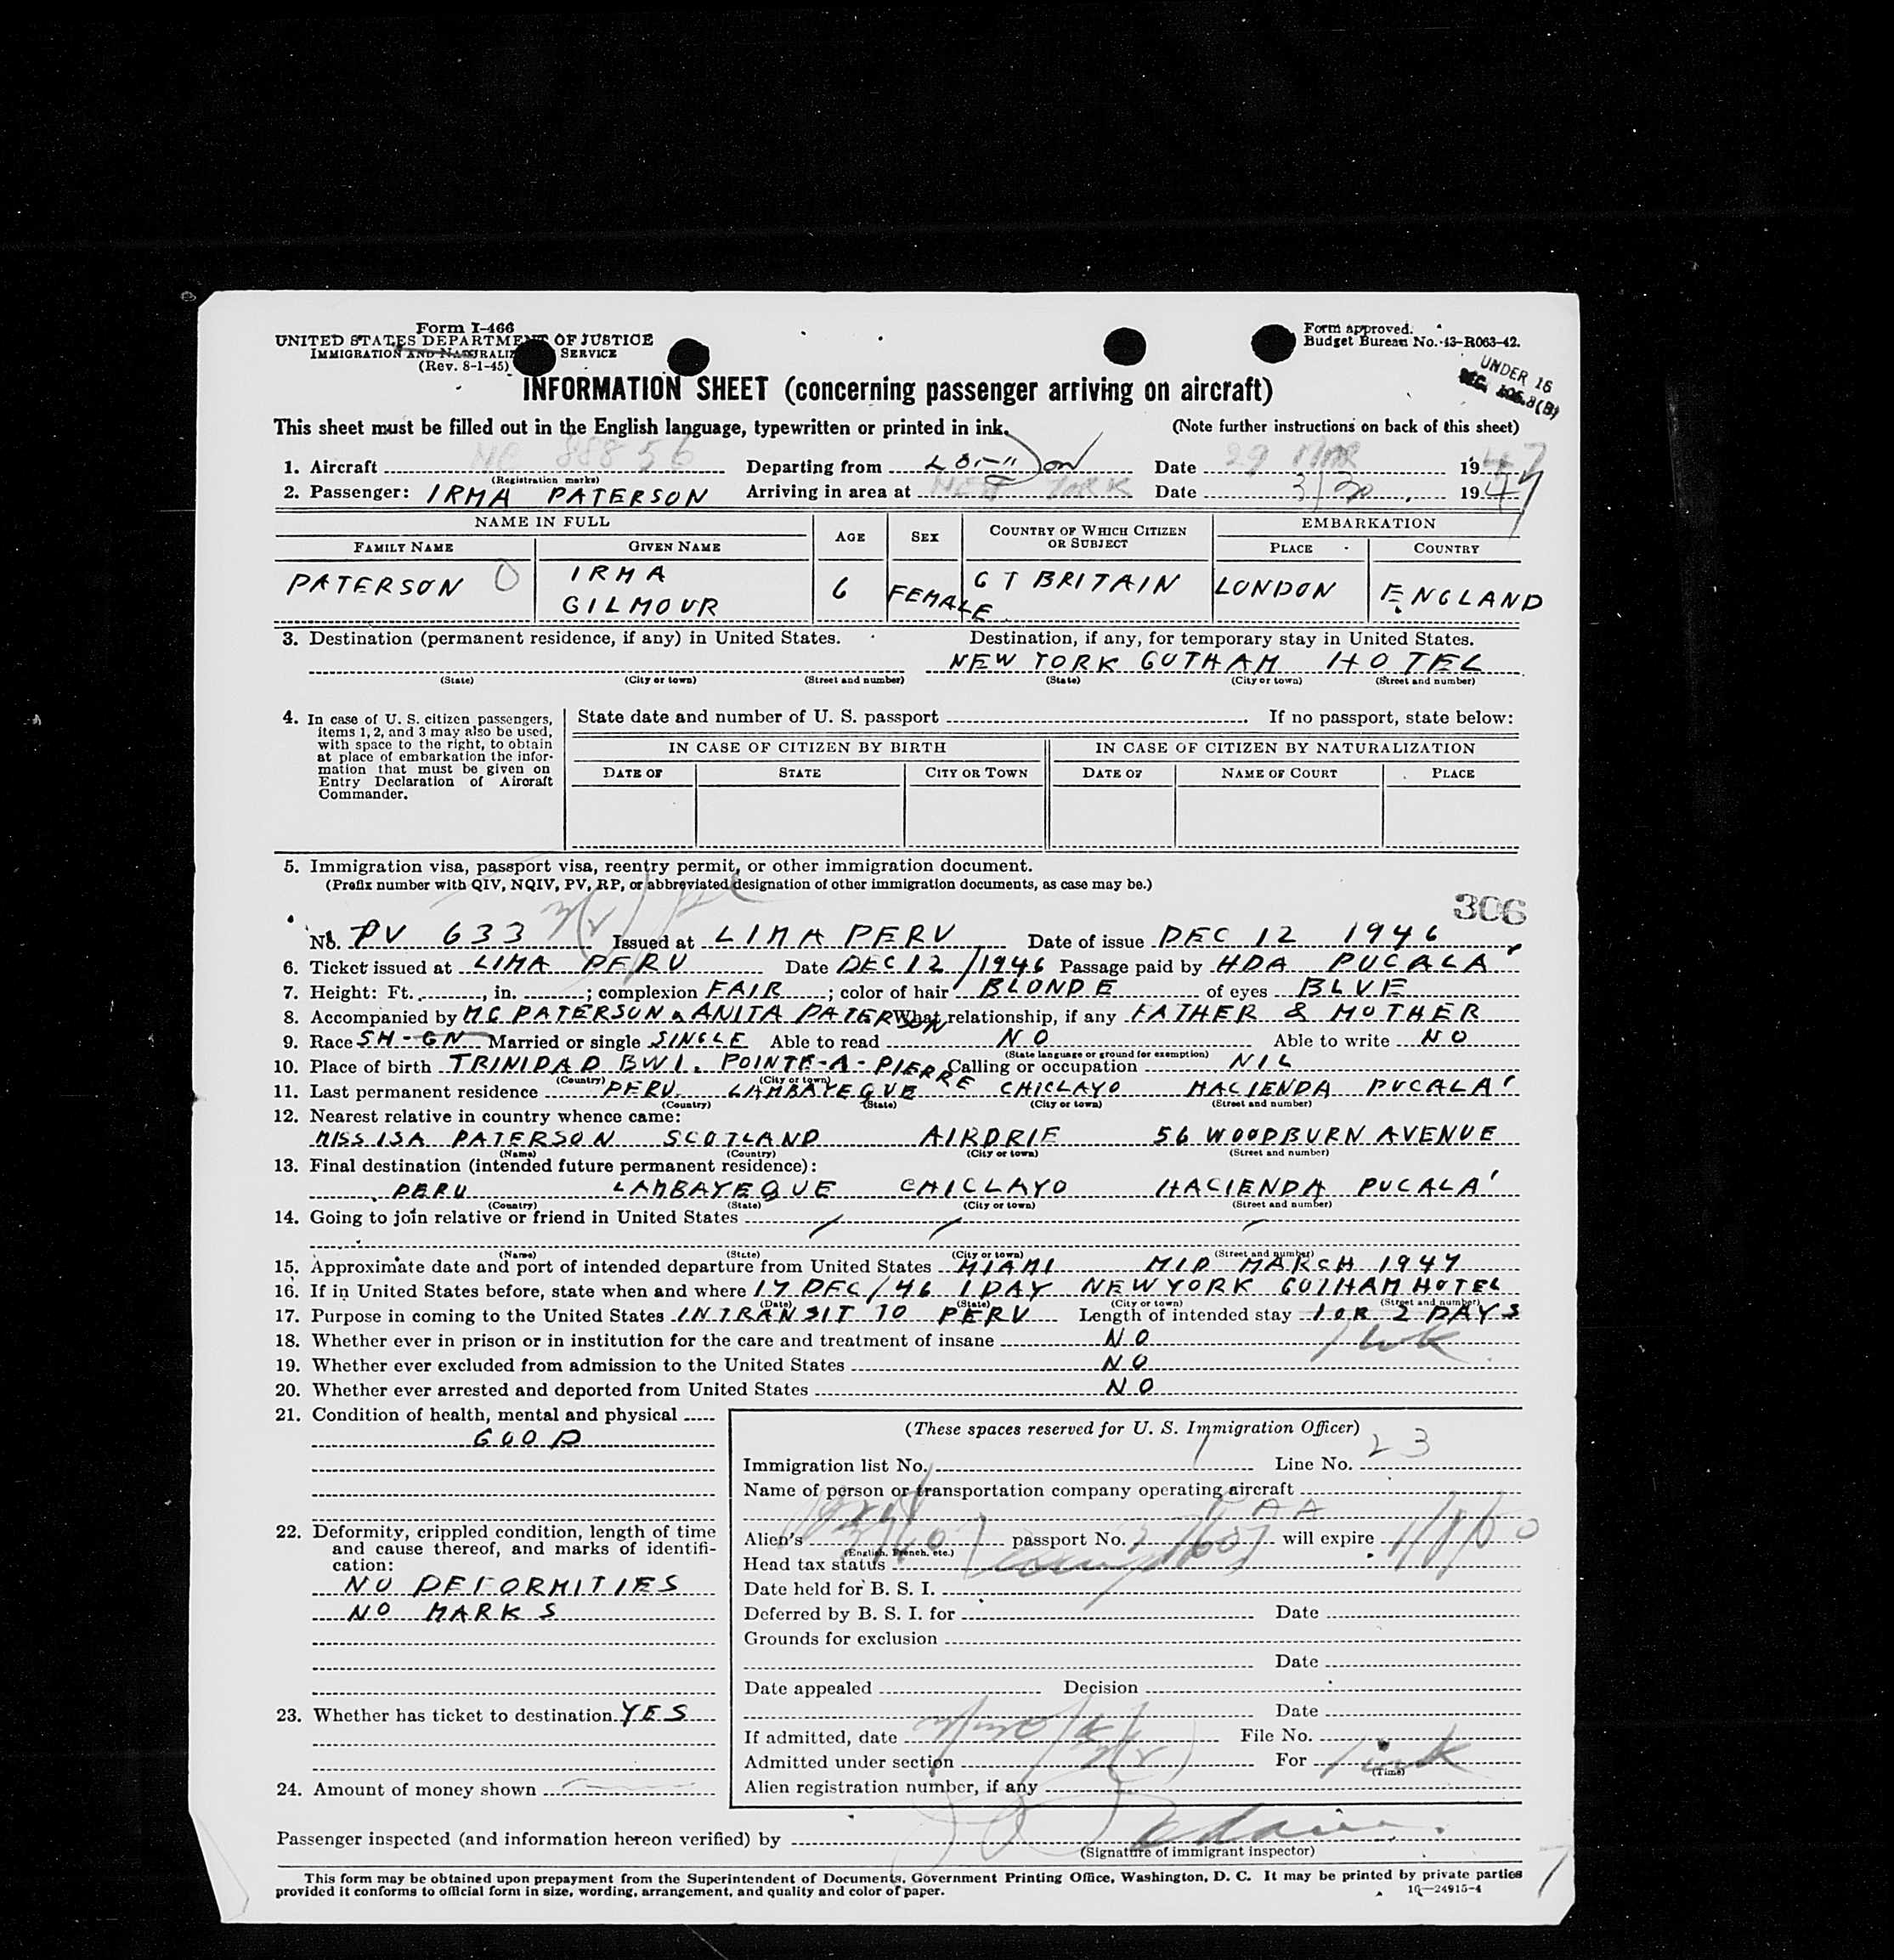 Form I-466
UNITED STATES DEPARTMENT OF JUSTICE
IMMIGRATION AND NATURALIZ SERVICE
(Rev. 8-1-45)
Form approved.
Budget Bureau No. 43-R063-42.
UNDER 16
SEC. 105.8(B)
INFORMATION SHEET (concerning passenger arriving on aircraft)
This sheet must be filled out in the English language, typewritten or printed in ink.
(Note further instructions on back of this sheet)
1. Aircraft NC 88856 Departing from London Date 29 MAR 1947
(Registration marks)
2. Passenger: IRMA PATERSON Arriving in area at NEW YORK Date 3/30 1947
NAME IN FULL AGE SEX COUNTRY OF WHICH CITIZEN OR SUBJECT EMBARKATION
FAMILY NAME GIVEN NAME PLACE COUNTRY
PATERSON IRMA GILMOUR 6 FEMALE GT BRITAIN LONDON ENGLAND
3. Destination (permanent residence, if any) in United States. Destination, if any, for temporary stay in United States.
NEW YORK GOTHAM HOTEL
(State) (City or town) (Street and number) (State) (City or town) (Street and number)
4. In case of U. S. citizen passengers, items 1, 2, and 3 may also be used, with space to the right, to obtain at place of embarkation the information that must be given on Entry Declaration of Aircraft Commander.
State date and number of U. S. passport If no passport, state below:
IN CASE OF CITIZEN BY BIRTH IN CASE OF CITIZEN BY NATURALIZATION
DATE OF STATE CITY OR TOWN DATE OF NAME OF COURT PLACE
5. Immigration visa, passport visa, reentry permit, or other immigration document.
(Prefix number with QIV, NQIV, PV, RP, or abbreviated designation of other immigration documents, as case may be.)
306
No. PV 633 Issued at LIMA PERU Date of issue DEC 12 1946
6. Ticket issued at LIMA PERU Date DEC 12/1946 Passage paid by HDA PUCALA'
7. Height: Ft. , in. ; complexion FAIR ; color of hair BLONDE of eyes BLUE
8. Accompanied by MC PATERSON & ANITA PATERSON What relationship, if any FATHER & MOTHER
9. Race SH-GN Married or single SINGLE Able to read NO Able to write NO
(State language or ground for exemption)
10. Place of birth TRINIDAD BWI. POINTE-A-PIERRE Calling or occupation NIL
(Country) (City or town)
11. Last permanent residence PERU LAMBAYEQUE CHICLAYO HACIENDA PUCALA'
(Country) (State) (City or town) (Street and number)
12. Nearest relative in country whence came:
MISS ISA PATERSON SCOTLAND AIRDRIE 56 WOODBURN AVENUE
(Name) (Country) (City or town) (Street and number)
13. Final destination (intended future permanent residence):
PERU LAMBAYEQUE CHICLAYO HACIENDA PUCALA'
(Country) (State) (City or town) (Street and number)
14. Going to join relative or friend in United States
(Name) (State) (City or town) (Street and number)
15. Approximate date and port of intended departure from United States MIAMI MID MARCH 1947
16. If in United States before, state when and where 17 DEC/46 1 DAY NEW YORK GOTHAM HOTEL
(Date) (State) (City or town) (Street and number)
17. Purpose in coming to the United States IN TRANSIT TO PERU Length of intended stay 1 OR 2 DAYS
1 wk
18. Whether ever in prison or in institution for the care and treatment of insane NO
19. Whether ever excluded from admission to the United States NO
20. Whether ever arrested and deported from United States NO
21. Condition of health, mental and physical
GOOD
22. Deformity, crippled condition, length of time and cause thereof, and marks of identification:
NO DEFORMITIES
NO MARKS
23. Whether has ticket to destination YES
24. Amount of money shown
(These spaces reserved for U. S. Immigration Officer)
Immigration list No. 1 Line No. 23
Name of person or transportation company operating aircraft
Alien's passport No. will expire
(English, French, etc.)
Head tax status
Date held for B. S. I.
Deferred by B. S. I. for Date
Grounds for exclusion
Date
Date appealed Decision
Date
If admitted, date File No.
Admitted under section For 1 wk
(Time)
Alien registration number, if any
Passenger inspected (and information hereon verified) by
(Signature of immigrant inspector)
This form may be obtained upon prepayment from the Superintendent of Documents, Government Printing Office, Washington, D. C. It may be printed by private parties
provided it conforms to official form in size, wording, arrangement, and quality and color of paper.
16—24915-4